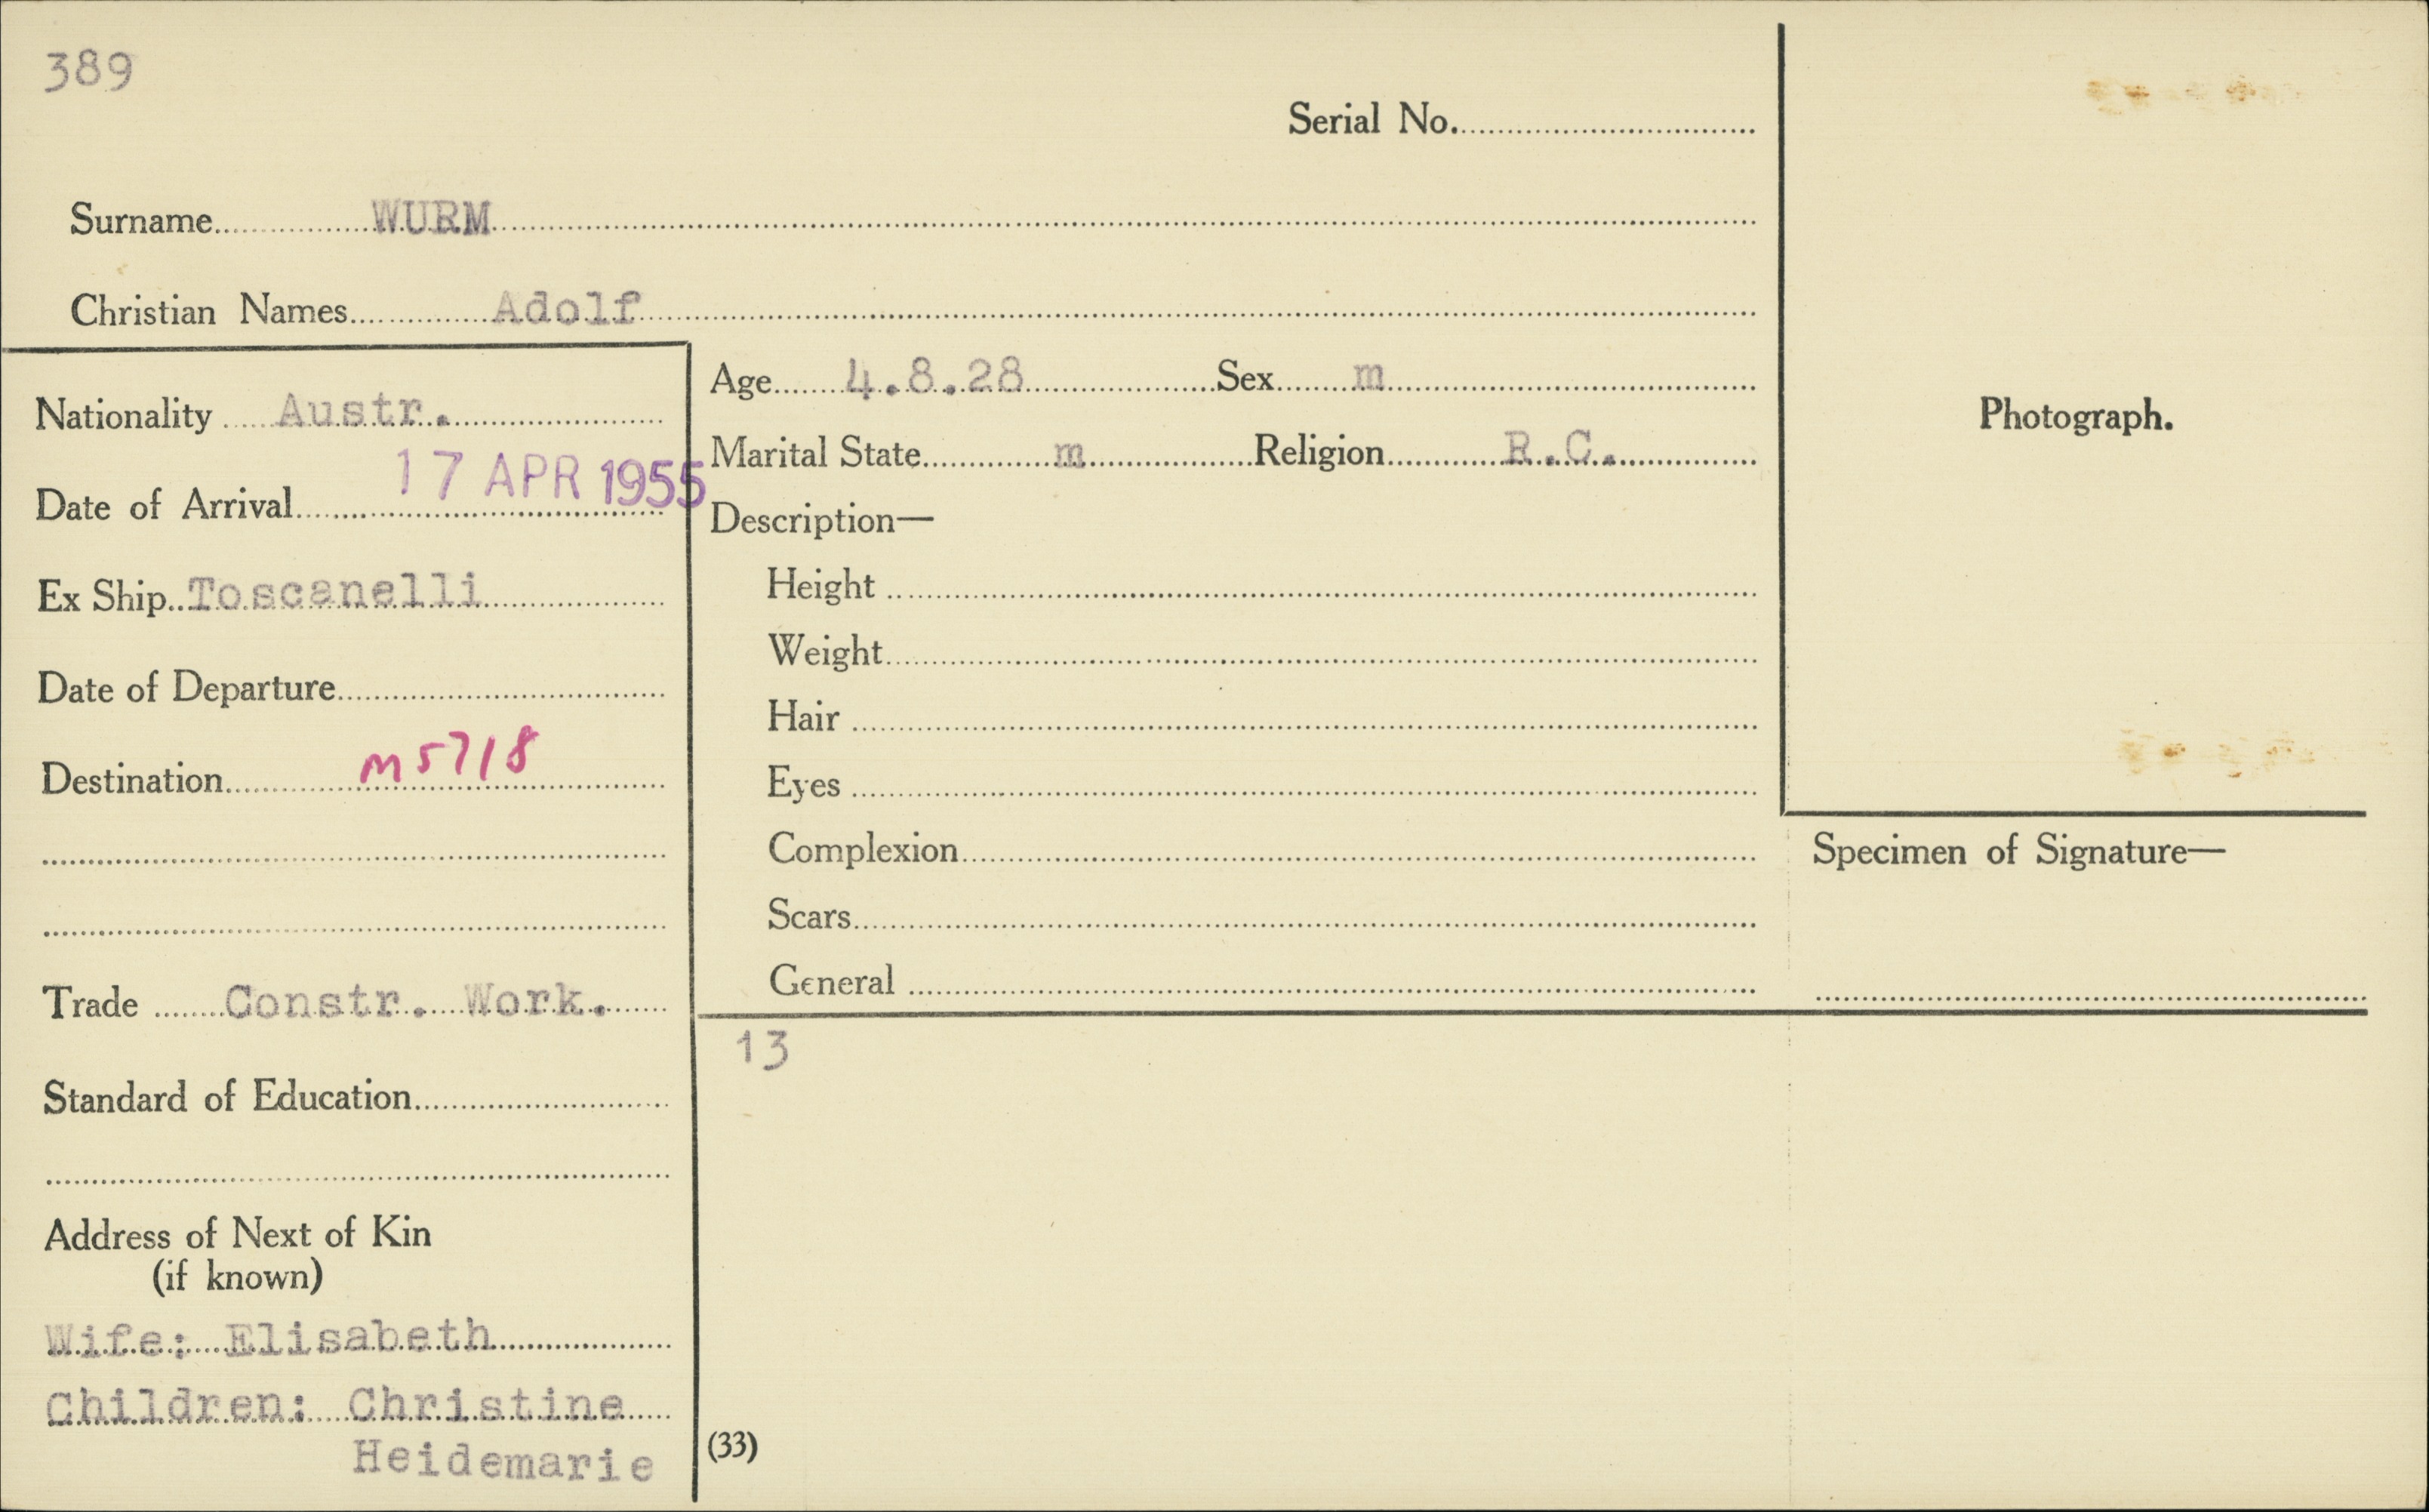 389
Serial No.
Surname WURM
Christian Names Adolf
Nationality Austr.
Date of Arrival 17 APR 1955
Ex Ship Toscanelli
Date of Departure
Destination M5718
Trade Constr. Work.
Standard of Education
Address of Next of Kin
(if known)
Wife: Elisabeth
Children: Christine
Heidemarie
Age 4.8.28 Sex m
Marital State m Religion R.C.
Description—
Height
Weight
Hair
Eyes
Complexion
Scars
General
13
(33)
Photograph.
Specimen of Signature—